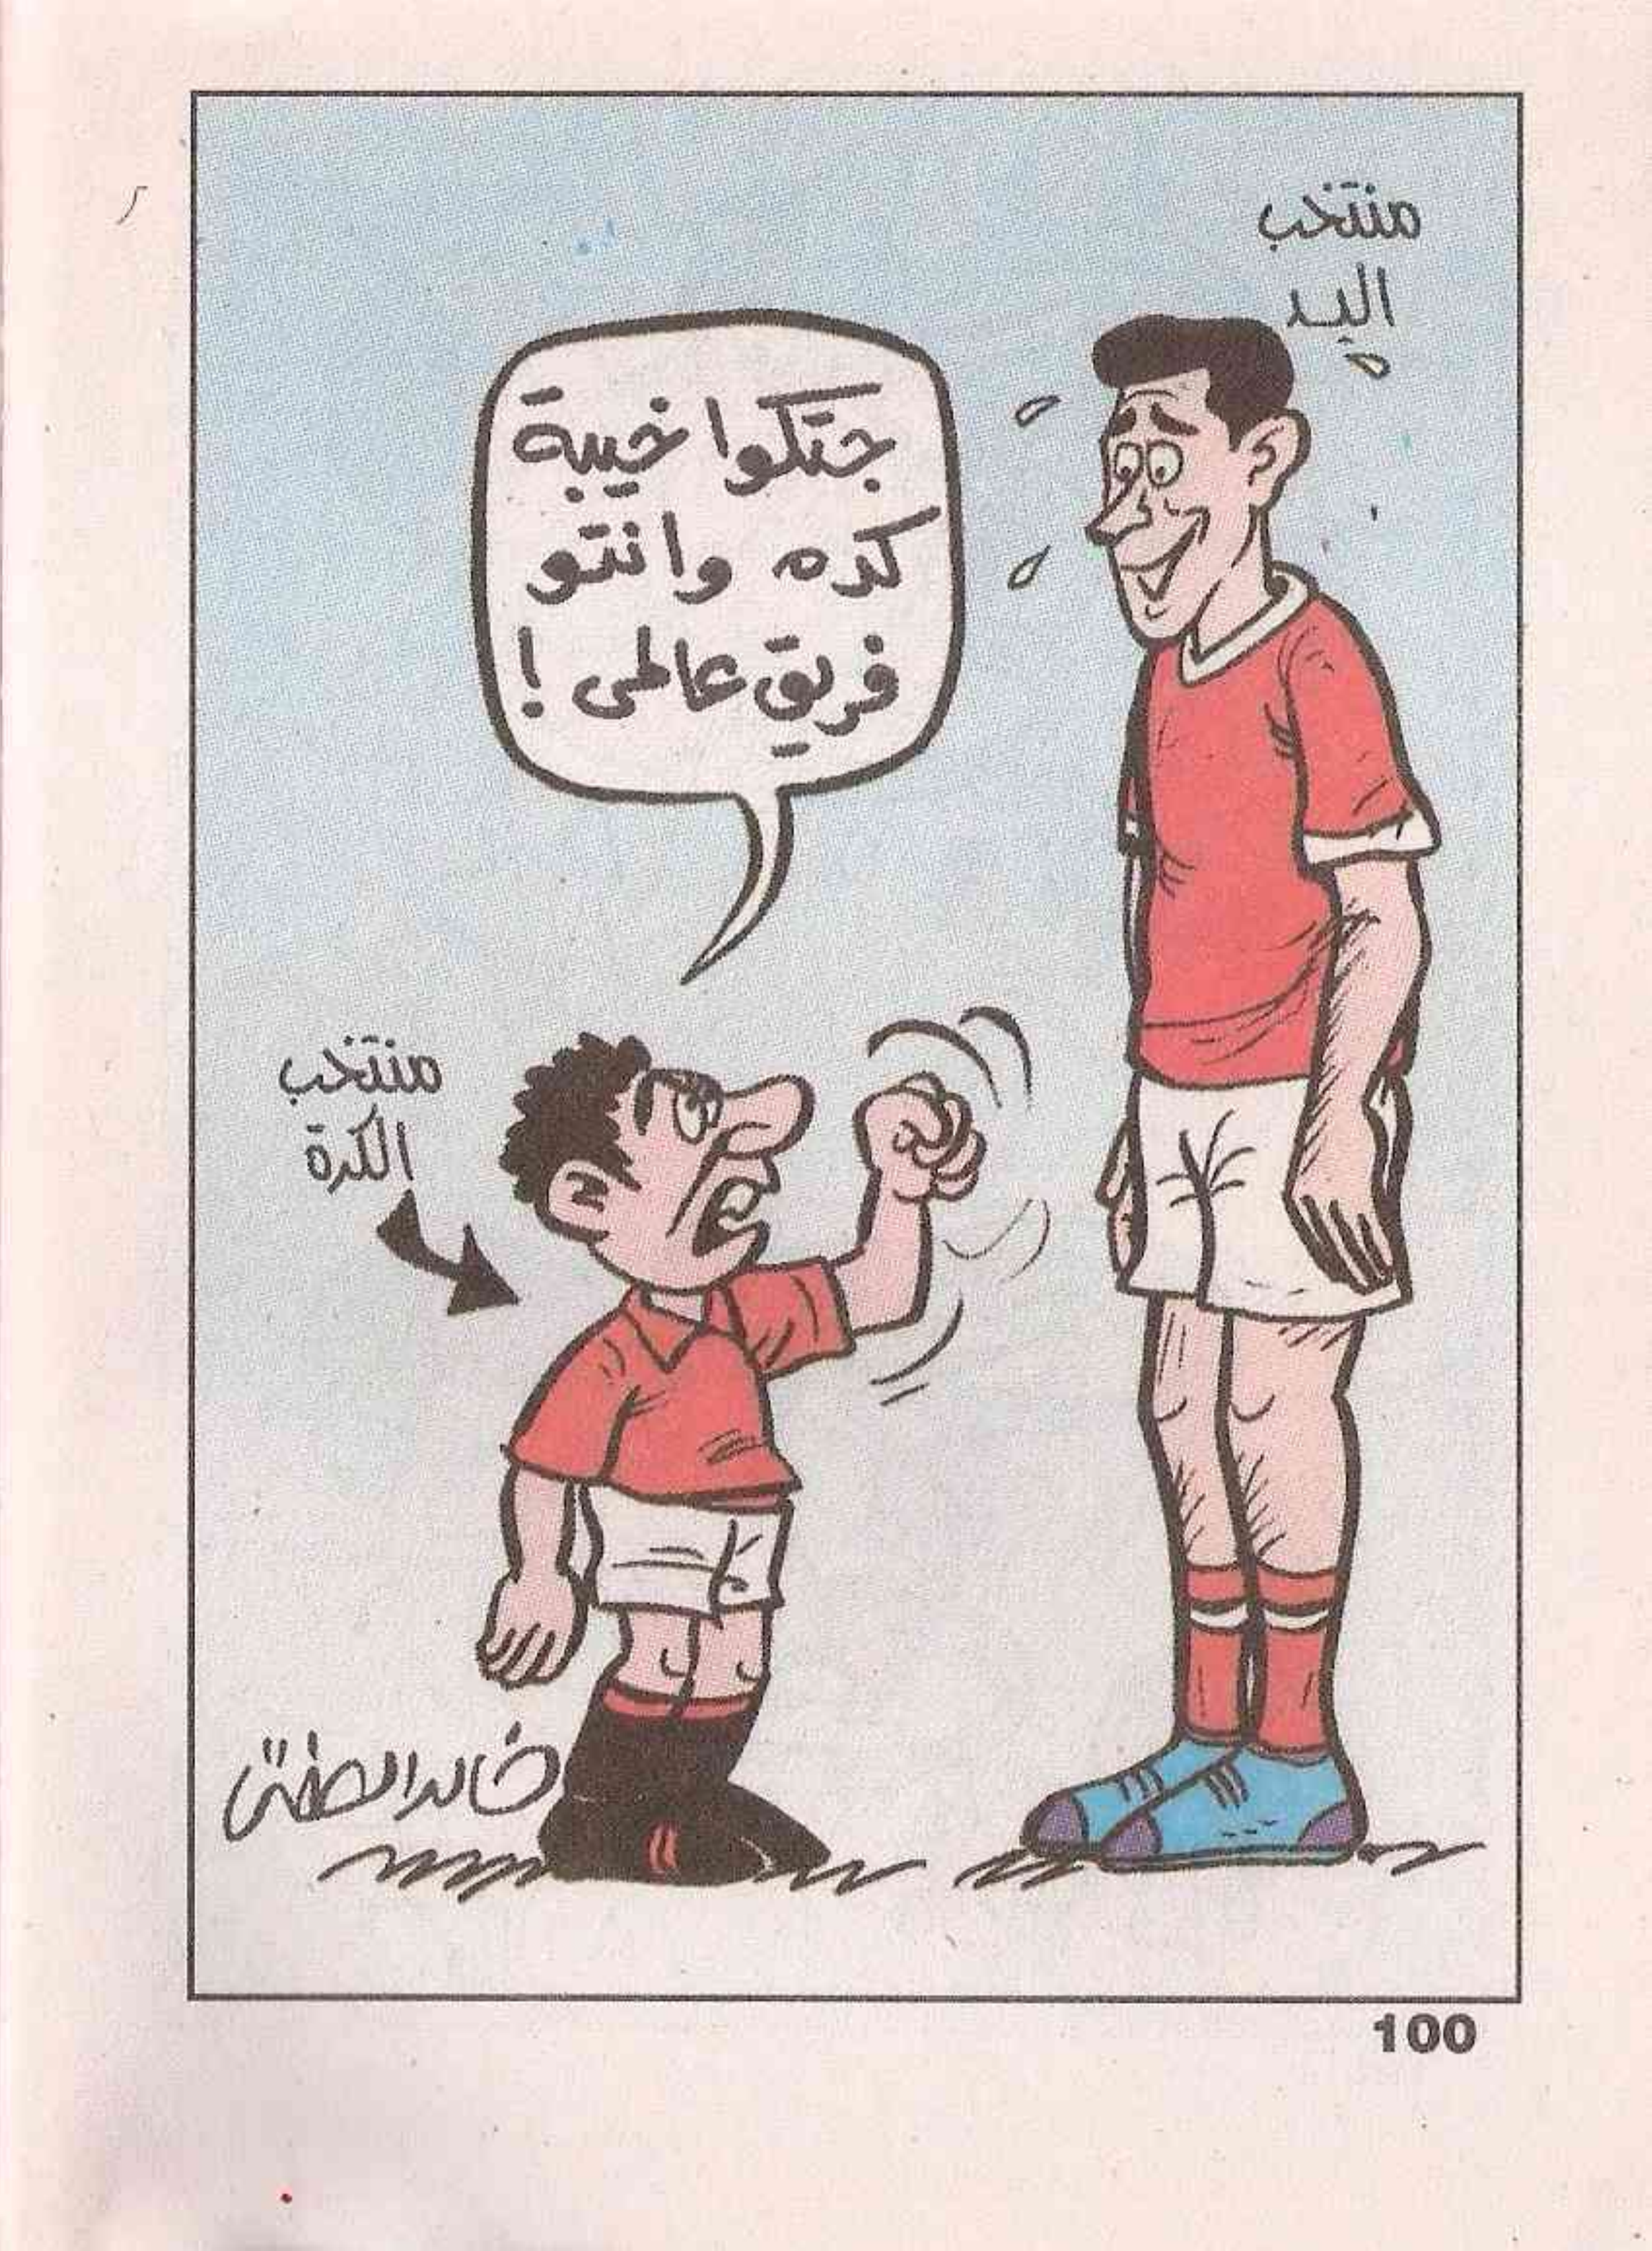 منتخب
اليد
جتكوا خيبة
كده وانتو
فريق عالمى !
منتخب
الكرة
خالد الصفتى
100